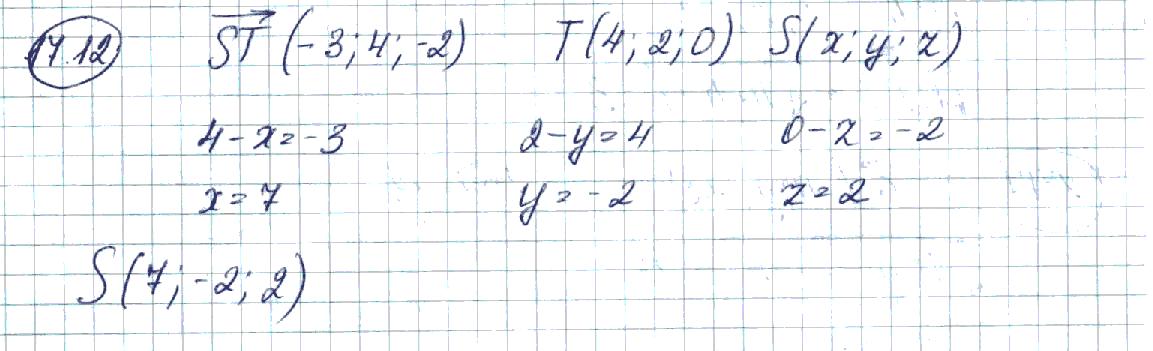 17.12 \overrightarrow{ST} (-3; 4; -2) T(4; 2; 0) S(x; y; z)
4-x=-3 2-y=4 0-z=-2
x=7 y=-2 z=2
S(7; -2; 2)